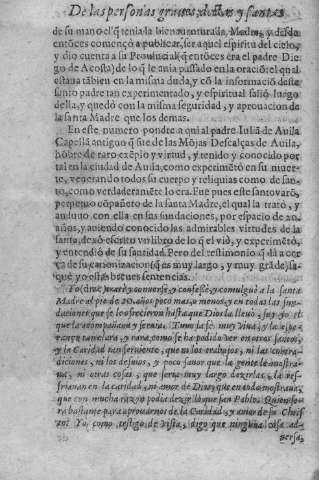 De las personas graues, doctas y santas
de su mano el q̃ tenia la bienauenturada Madre, y desde
entõces començò a publicar, ser aquel espiritu del cielo,
y dio cuenta a su Prouincial (q̃ entonces era el padre Die
go de Acosta) de lo q̃ le auia passado en la oracion: el qual
estaua tãbien en la misma duda, y cõ la informacio deste
santo padre tan experimentado, y espiritual salio luego
della, y quedò con la misma seguridad, y aprouacion de
la santa Madre que los demas.
En este numero pondre a qui al padre Iuliã de Auila
Capellã antiguo q̃ fue de las Mõjas Descalças de Auila,
hõbre de raro exẽplo y virtud, y tenido y conocido por
tal en la ciudad de Auila, como experimẽtò en su muer-
te, venerando todos su cuerpo y reliquias como de san-
to, como verdaderamẽte lo era. Fue pues este santo varõ,
perpetuo cõpañero de la santa Madre, el qual la tratò, y
anduuo con ella en sus fundaciones, por espacio de 20.
años, y auiendo conocido las admirables virtudes de la
santa, dexò escrito vn libro de lo q̃ el viò, y experimẽtò,
y entendiò de su santidad. Pero del testimonio q̃ dà a cer
ca de su canonizacion (q̃ es muy largo, y muy grãde) sa-
què yo estas breues sentencias.
Yo (dize) tratè y conuersè, y confessè, y comulguè a la santa
Madre al pie de 20. años poco mas, o menos, y en todas las fun-
daciones que se le ofrecieron hasta que Dios la lleuò, fuy yo el
que la acompañaua y seruia. Tuuo la fè muy viua, y la espe-
rança
y la Caridad tan feruiente, que ni los trabajos, ni las contra-
diciones, ni los desuios, y poco fauor que la gente le mostra-
ua, ni otras cosas, que seria muy largo dezirlas, la res-
friauan en la caridad, ni amor de Dios;
que con mucha razon podia dezir lo que san Pablo.
Yo, como testigo de vista, digo que ninguna cosa ad-
uersa,